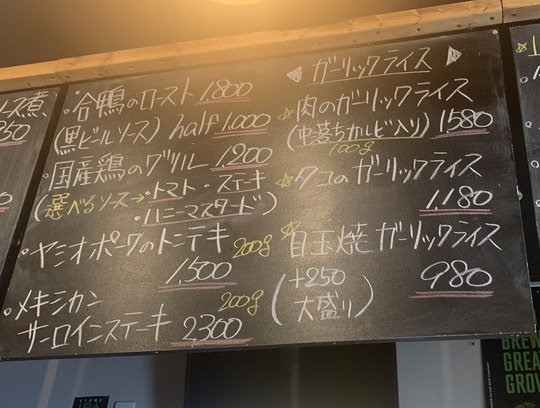 ース煮
・合鴨のロースト 1,800
(黒ビールソース) half 1,000
・国産鶏のグリル 1,200
(選べるソース→・トマト・ステキ
・ハニーマスタード)
・ヤミオポークのトンテキ 200g
1,500
・メキシカン 200g
サーロインステーキ 2300
◀ ガーリックライス ▶
☆肉のガーリックライス
(中落ちカルビ入り) 1580
100g
☆タコのガーリックライス
1,180
☆目玉焼ガーリックライス
980
(+250
大盛り)
BREW
GREA
GROW